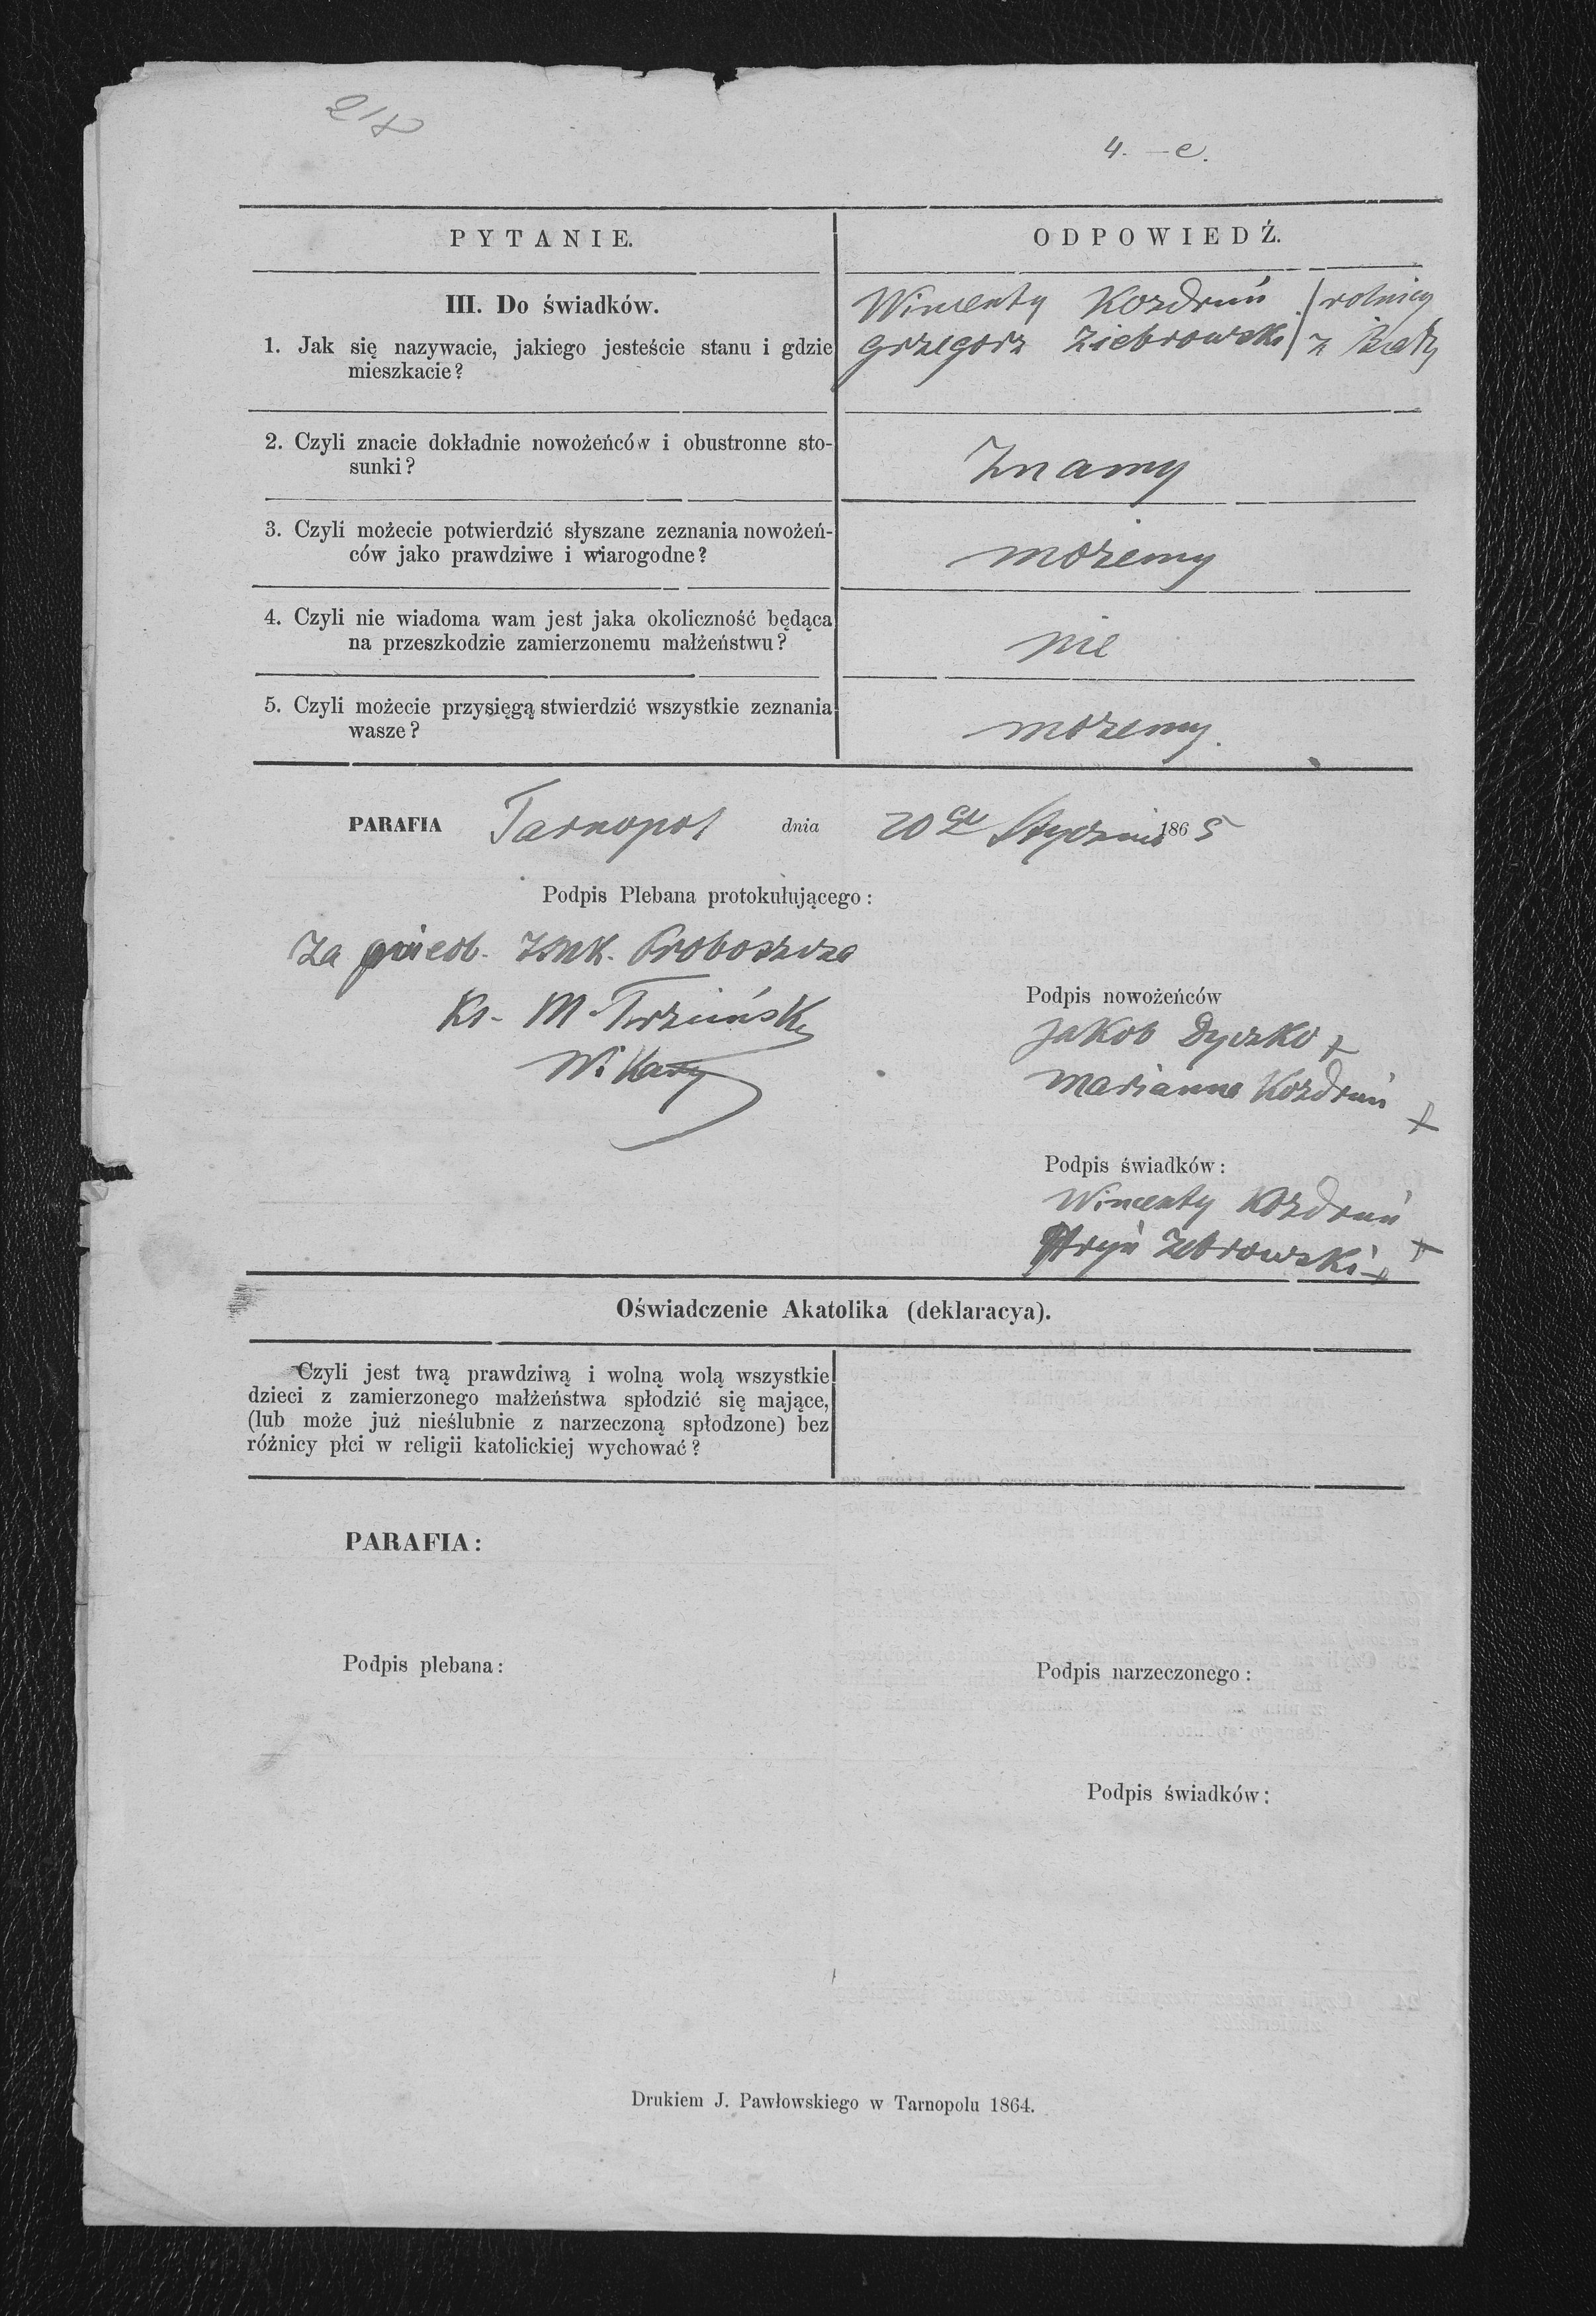 218
4. – e.
PYTANIE.
ODPOWIEDŹ.
III. Do świadków.
1. Jak się nazywacie, jakiego jesteście stanu i gdzie
mieszkacie?
Wincenty Kozdruń rolnicy
Grzegorz Ziebrowski z Biały
2. Czyli znacie dokładnie nowożeńców i obustronne sto-
sunki?
Znamy
3. Czyli możecie potwierdzić słyszane zeznania nowożeń-
ców jako prawdziwe i wiarogodne?
możemy
4. Czyli nie wiadoma wam jest jaka okoliczność będąca
na przeszkodzie zamierzonemu małżeństwu?
nie
5. Czyli możecie przysięgą stwierdzić wszystkie zeznania
wasze?
możemy.
PARAFIA Tarnopol dnia 20go Stycznia 1865
Podpis Plebana protokułującego:
Za Proboszcza
Ks. M.
Wikary
Podpis nowożeńców
Jakob Dyczko +
Marianna Kozdruń +
Podpis świadków:
Wincenty Kozdruń +
Hryń Zebrowski +
Oświadczenie Akatolika (deklaracya).
Czyli jest twą prawdziwą i wolną wolą wszystkie
dzieci z zamierzonego małżeństwa spłodzić się mające,
(lub może już nieślubnie z narzeczoną spłodzone) bez
różnicy płci w religii katolickiej wychować?
PARAFIA:
Podpis plebana:
Podpis narzeczonego:
Podpis świadków:
Drukiem J. Pawłowskiego w Tarnopolu 1864.